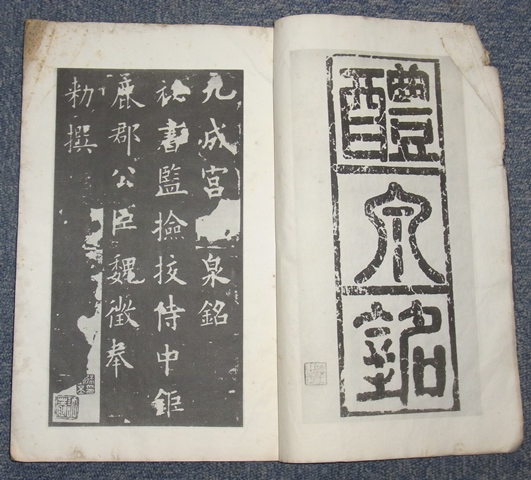 醴泉銘
九成宮泉銘
秘書監撿挍侍中鉅
鹿郡公臣魏徵奉
勑撰